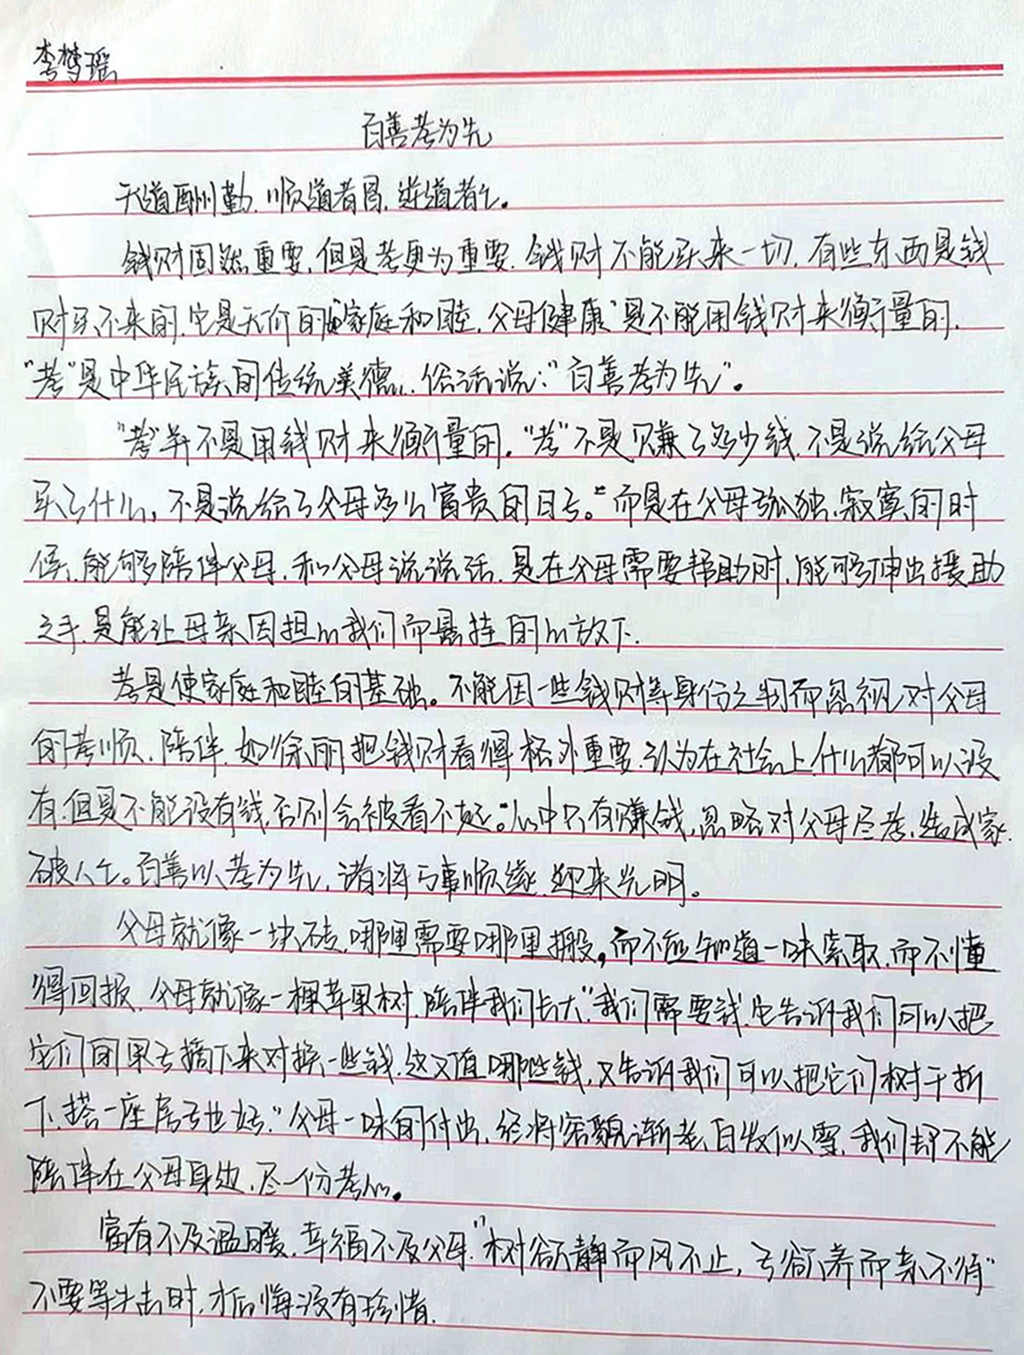 李梦瑶
百善孝为先
天道酬勤,顺道者昌,逆道者亡。
钱财固然重要,但是孝更为重要,钱财不能买来一切,有些东西是钱
财买不来的,它是无价的"家庭和睦,父母健康"是不能用钱财来衡量的,
"孝"是中华民族的传统美德...俗话说:"百善孝为先"。
"孝"并不是用钱财来衡量的。"孝"不是赚了多少钱,不是说给父母
买了什么,不是说给了父母多么富贵的日子。而是在父母孤独,寂寞的时
候,能够陪伴父母,和父母说说话,是在父母需要帮助时,能够伸出援助
之手,是能让母亲因担心我们而悬挂的心放下.
孝是使家庭和睦的基础。不能因一些钱财等身份之物而忽视对父母
的孝顺,陪伴,如徐丽把钱财看得格外重要,认为在社会上什么都可以没
有,但是不能没有钱,否则会被看不起。"心中只有赚钱,忽略对父母尽孝,造成家
破人亡。百善以孝为先,诸将子事顺缘,迎来光明。
父母就像一块砖,哪里需要哪里搬,而不应知道一味索取,而不懂
得回报,父母就像一棵苹果树,陪伴我们长大"我们需要钱,它告诉我们可以把
它们的果子摘下来对换一些钱,这又值哪些钱,又告诉我们可以把它们树干折
下,搭一座房子也好,"父母一味的付出,终将容貌渐老,白发似雪,我们却不能
陪伴在父母身边,尽一份孝心。
富有不及温暖,幸福不及父母,"树欲静而风不止,子欲养而亲不待"
不要等失去时,才后悔没有珍惜.